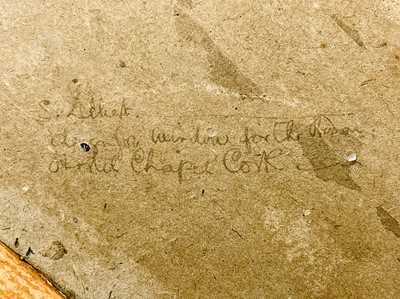 S. Albert.
design for window for the Honan
Hostel Chapel Cork